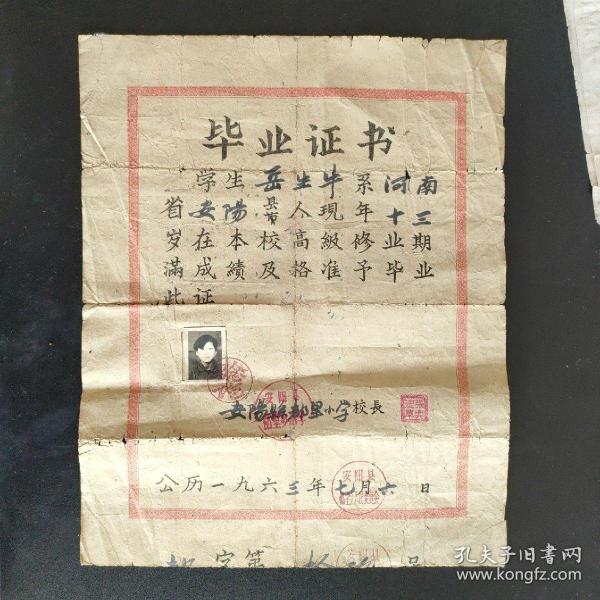 毕业证书
学生岳生牛系河南
省安陽县市人現年十三
岁在本校高級修业期
滿成績及格准予毕业
此证
安陽縣都里小学校長
安阳县
公历一九六三年七月六日
安阳县
字第 号
孔夫子旧书网
www.kongfz.com